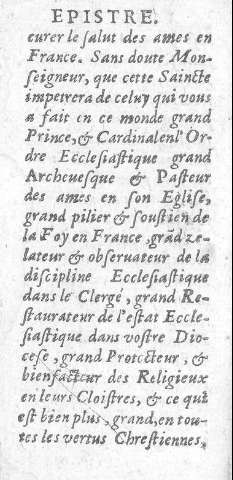 EPISTRE.
curer le salut des ames en
France. Sans doute Mon-
seigneur, que cette Saincte
impetrera de celuy qui vous
a fait en ce monde grand
Prince, & Cardinal en l'Or-
dre Ecclesiastique grand
Archeuesque & Pasteur
des ames en son Eglise,
grand pilier & soustien de
la Foy en France, grãd ze-
lateur & obseruateur de la
discipline Ecclesiastique
dans le Clergé, grand Re-
staurateur de l'estat Eccle-
siastique dans vostre Dio-
cese, grand Protecteur, &
bienfacteur des Religieux
en leurs Cloistres, & ce qui
est bien plus, grand, en tou-
tes les vertus Chrestiennes,